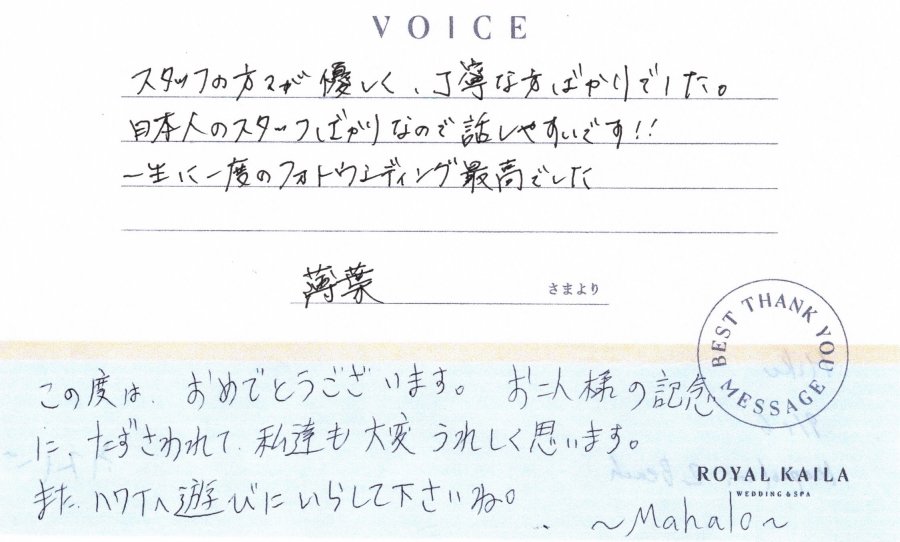 VOICE
スタッフの方々が優しく、丁寧な方ばかりでした。
日本人のスタッフばかりなので話しやすいです!!
一生に一度のフォトウェディング最高でした
薄葉 さまより
BEST THANK YOU MESSAGE
この度は、おめでとうございます。お二人様の記念
に、たずさわれて、私達も大変うれしく思います。
また、ハワイへ遊びにいらして下さいね。
ROYAL KAILA
WEDDING & SPA
～Mahalo～